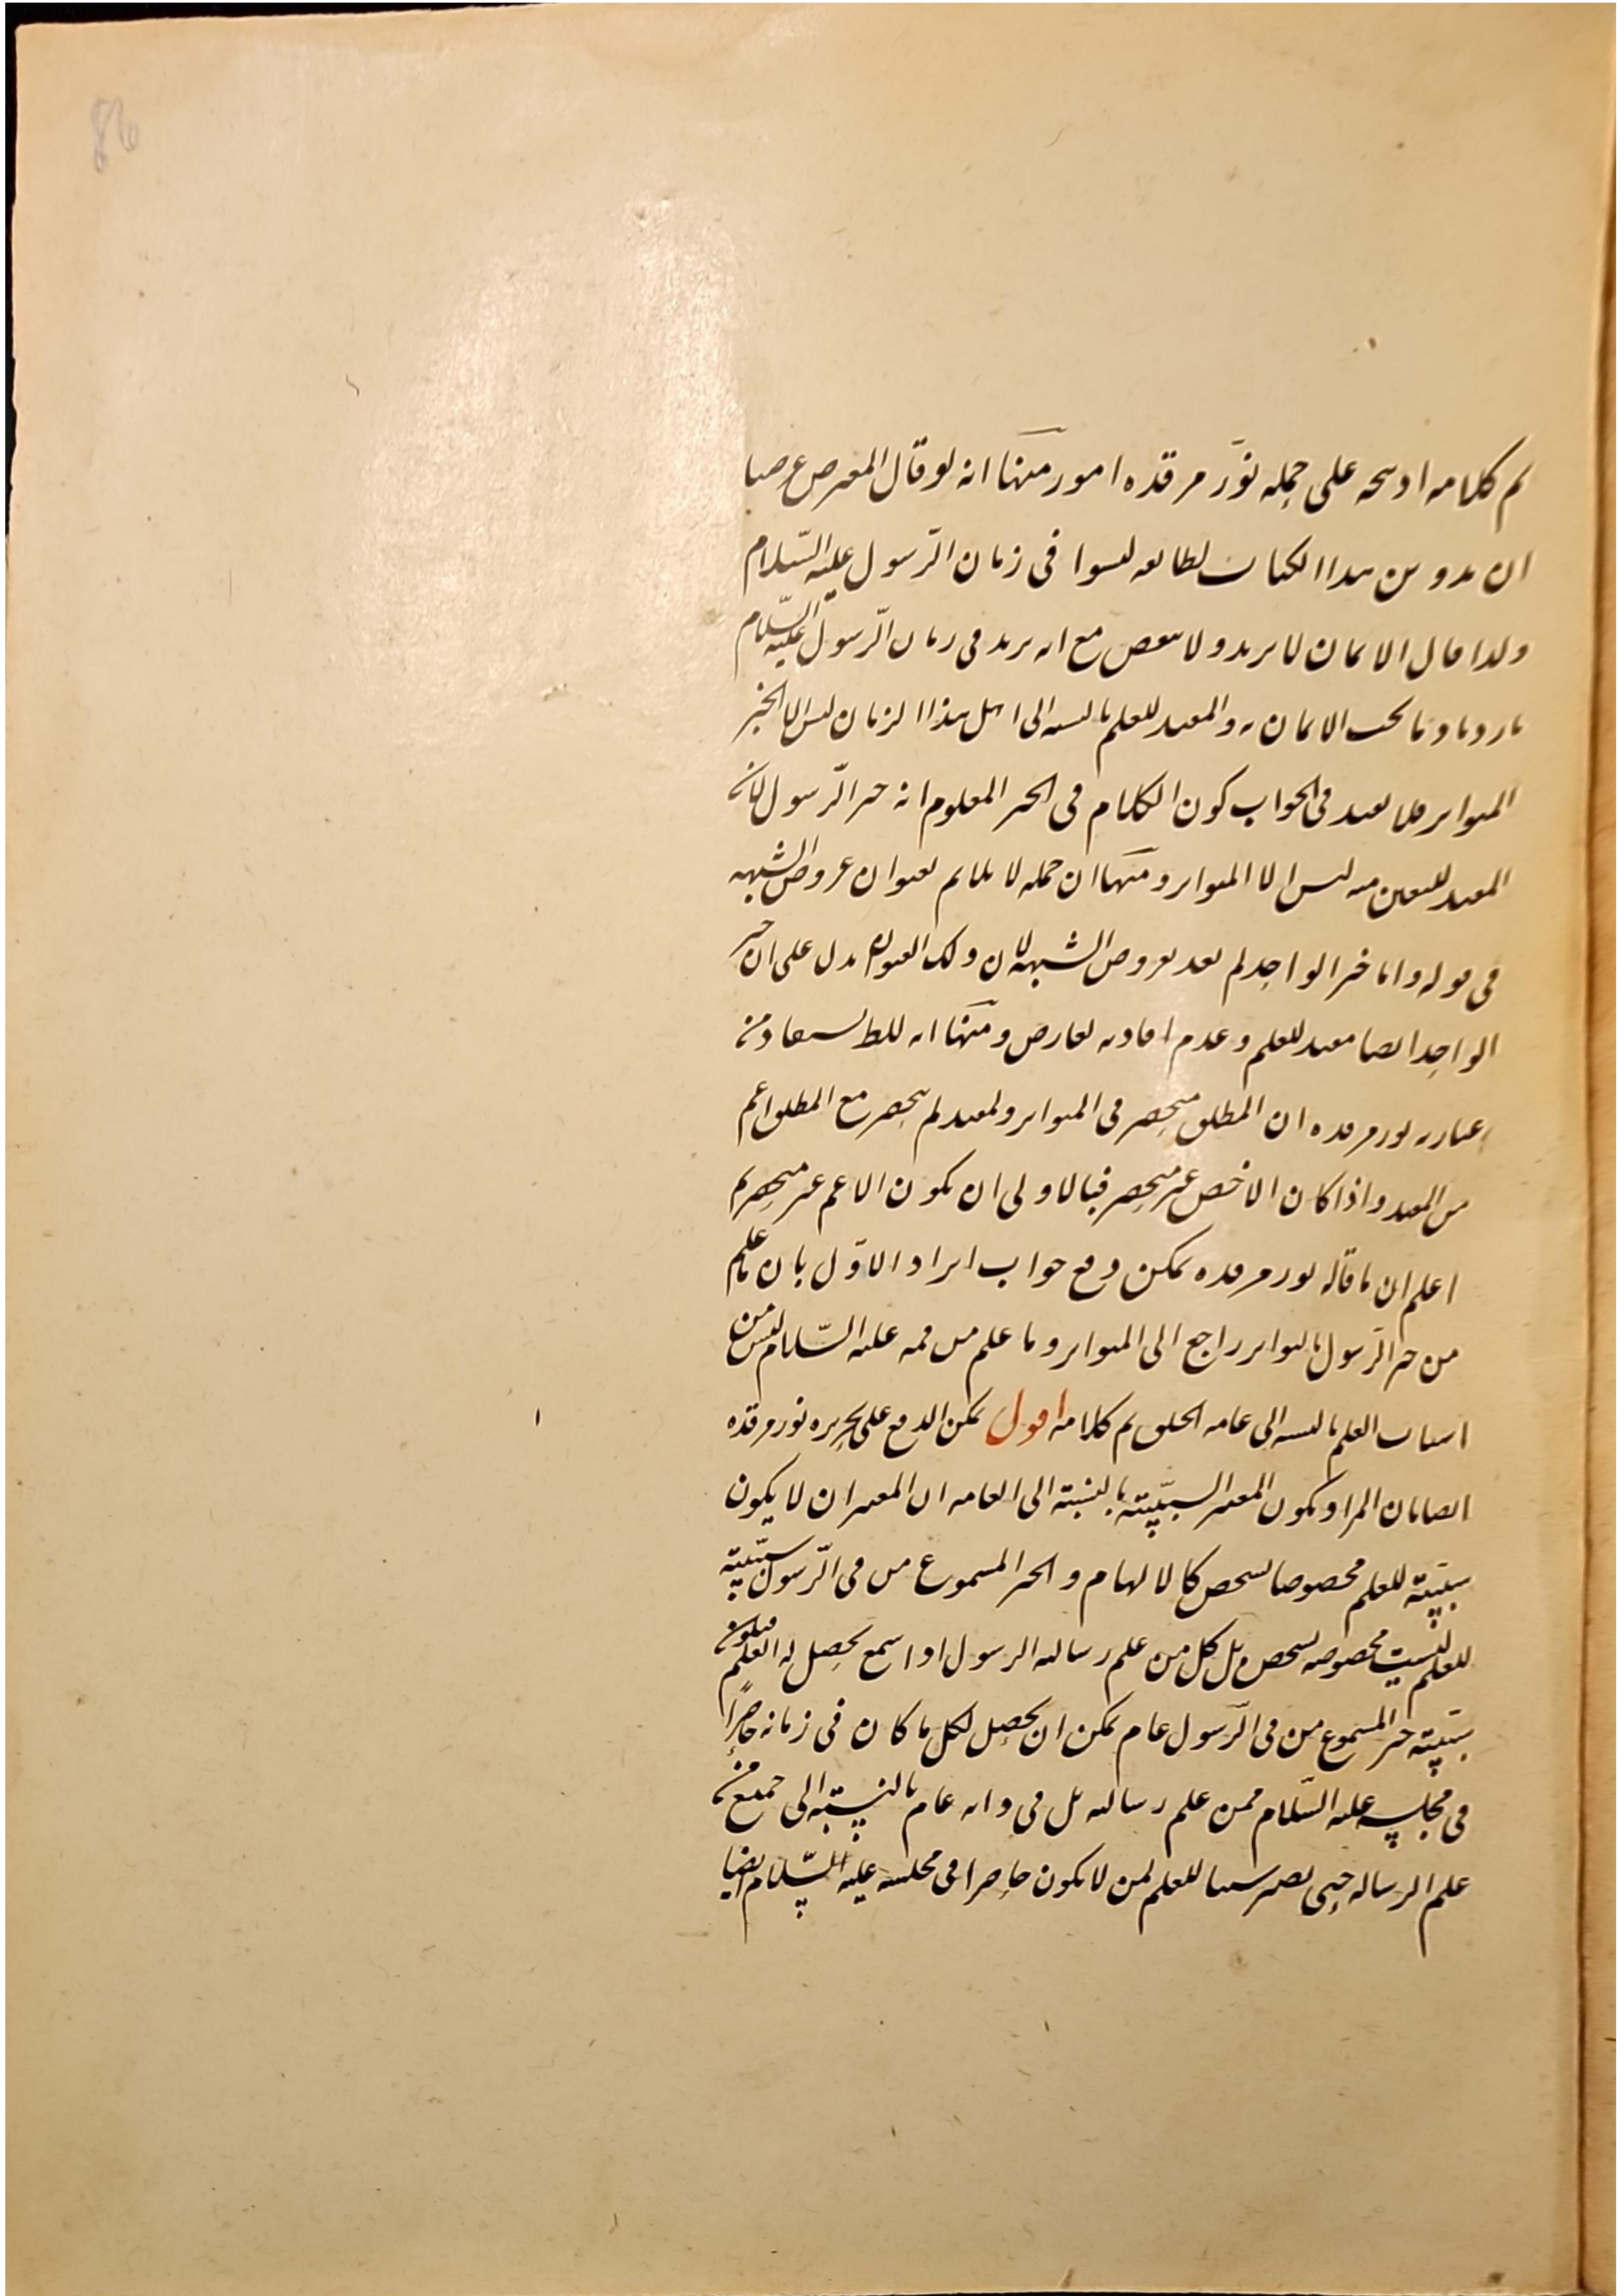 86
تم كلامه او يتجه على حمله نوّر مرقده امور منها انه لو قال المعترض عرضنا
ان تدوين هذا الكتاب لطائفة ليسوا في زمان الرّسول عليه السّلام
ولذا قال الايمان لا يزيد ولا ينقص مع انه يزيد في زمان الرّسول عليه السّلام
بازدياد ما يجب الايمان به والمفيد للعلم بالنسبة الى اهل هذا الزمان ليس الا الخبر
المتواتر فلا يفيد في الجواب كون الكلام في الخبر المعلوم انه خبر الرّسول لان
المفيد لليقين منه ليس الا المتواتر ومنها ان حمله لا يلايم لعنوان عروض الشبهة
في قوله واما خبر الواحد لم يفد لعروض الشبهة لان ذلك العنوان يدل على ان خبر
الواحد ايضا مفيد للعلم وعدم افادته لعارض ومنها انه للط يستفاد من
عبارته نور مرقده ان المطلق منحصر في المتواتر والمفيد لم ينحصر مع المطلق اعم
من المفيد واذا كان الاخص غير منحصر فبالاولى ان يكون الاعم غير منحصر تم
اعلم ان ما قاله نور مرقده يمكن دفع جواب ايراد الاوّل بان ما علم
من خبر الرّسول بالتواتر راجع الى المتواتر وما علم من فمه عليه السّلام ليس من
اسباب العلم بالنسبة الى عامة الخلق تم كلامه اقول يمكن الدفع على تحريره نور مرقده
ايضا بان المراد يكون المعتبر السببيّة بالنسبة الى العامه ان المعتبر ان لا يكون
سببيّة للعلم مخصوصا لشخص كالالهام والخبر المسموع من في الرّسول سببيّة
للعلم ليست مخصوصه لشخص بل كل من علم رسالة الرسول اذا سمع يحصل له العلم فيكون
سببيّة خبر المسموع من في الرّسول عام يمكن ان يحصل لكل ما كان في زمانه حاضرًا
في مجلسه عليه السّلام ممن علم رسالته بل في ذاته عام بالنسبة الى جميع من
علم الرسالة حتى يصير سببا للعلم لمن لا يكون حاضرا في مجلسه عليه السّلام ايضا